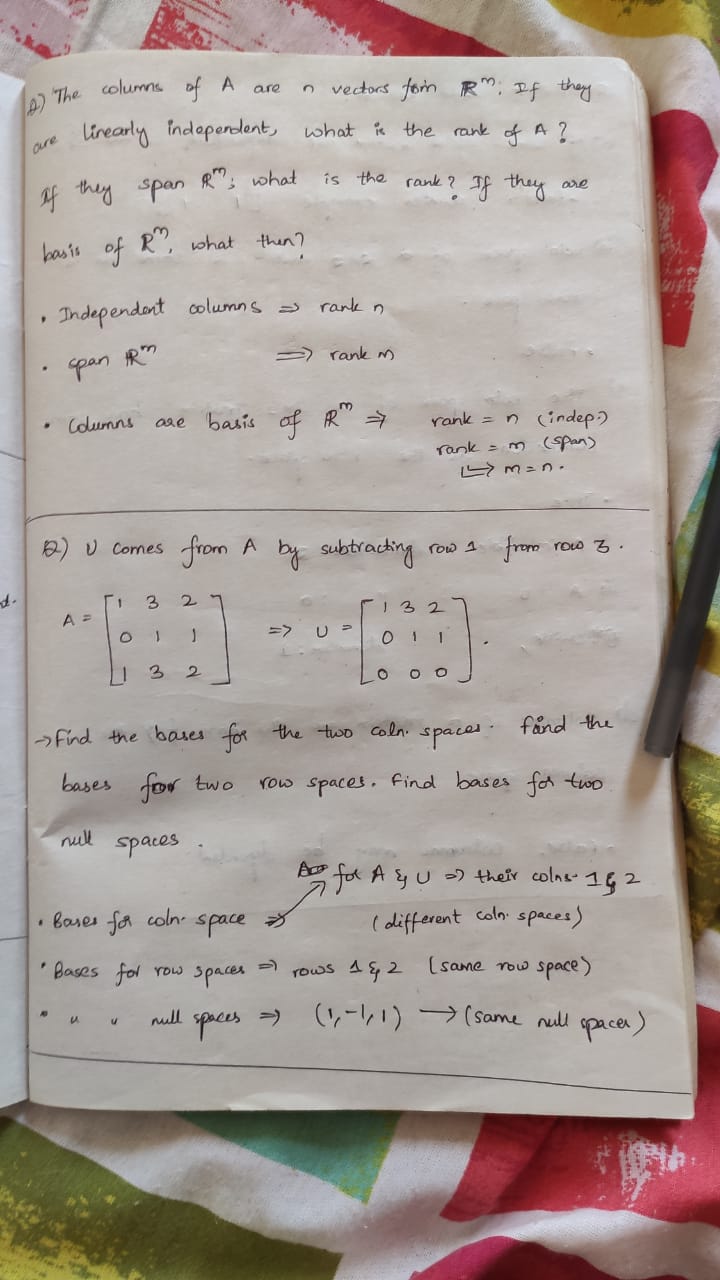 Q) The columns of A are n vectors from R^m; If they
are linearly independent, what is the rank of A?
If they span R^m; what is the rank? If they are
basis of R^m, what then?
• Independent columns => rank n
• span R^m => rank m
• Columns are basis of R^m => rank = n (indep.)
rank = m (span)
↳ m = n.
Q) U comes from A by subtracting row 1 from row 3.
A = [1 3 2
0 1 1
1 3 2]
=> U = [1 3 2
0 1 1
0 0 0].
→ Find the bases for the two coln. spaces. find the
bases for two row spaces. Find bases for two
null spaces.
for A & U => their colns. 1 & 2
• Bases for coln. space => (different coln. spaces)
• Bases for row spaces => rows 1 & 2 (same row space)
• " " null spaces => (1,-1,1) → (same null spaces)
d.